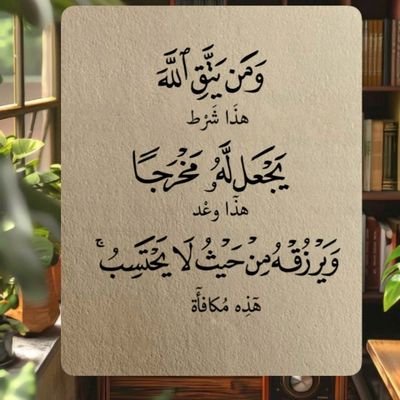 وَمَن يَتَّقِ ٱللَّهَ
هذَا شَرْط
يَجْعَل لَّهُۥ مَخْرَجًا
هذَا وعْد
وَيَرْزُقْهُ مِنْ حَيْثُ لَا يَحْتَسِبُ ۚ
هَٰذِه مُكافأَة